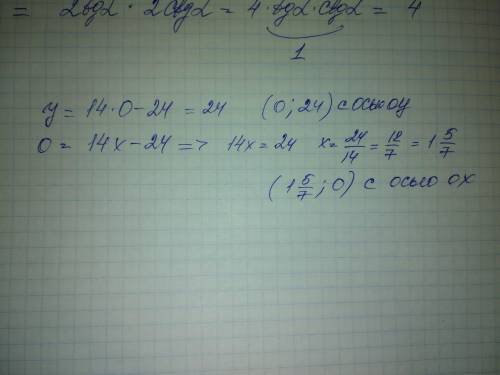 = 2tgα · 2ctgα = 4 · tgα · ctgα = 4
1
y = 14·0-24 = 24 (0; 24) с осью оу
0 = 14x-24 => 14x = 24 x = 24/14 = 12/7 = 1 5/7
(1 5/7; 0) с осью ох